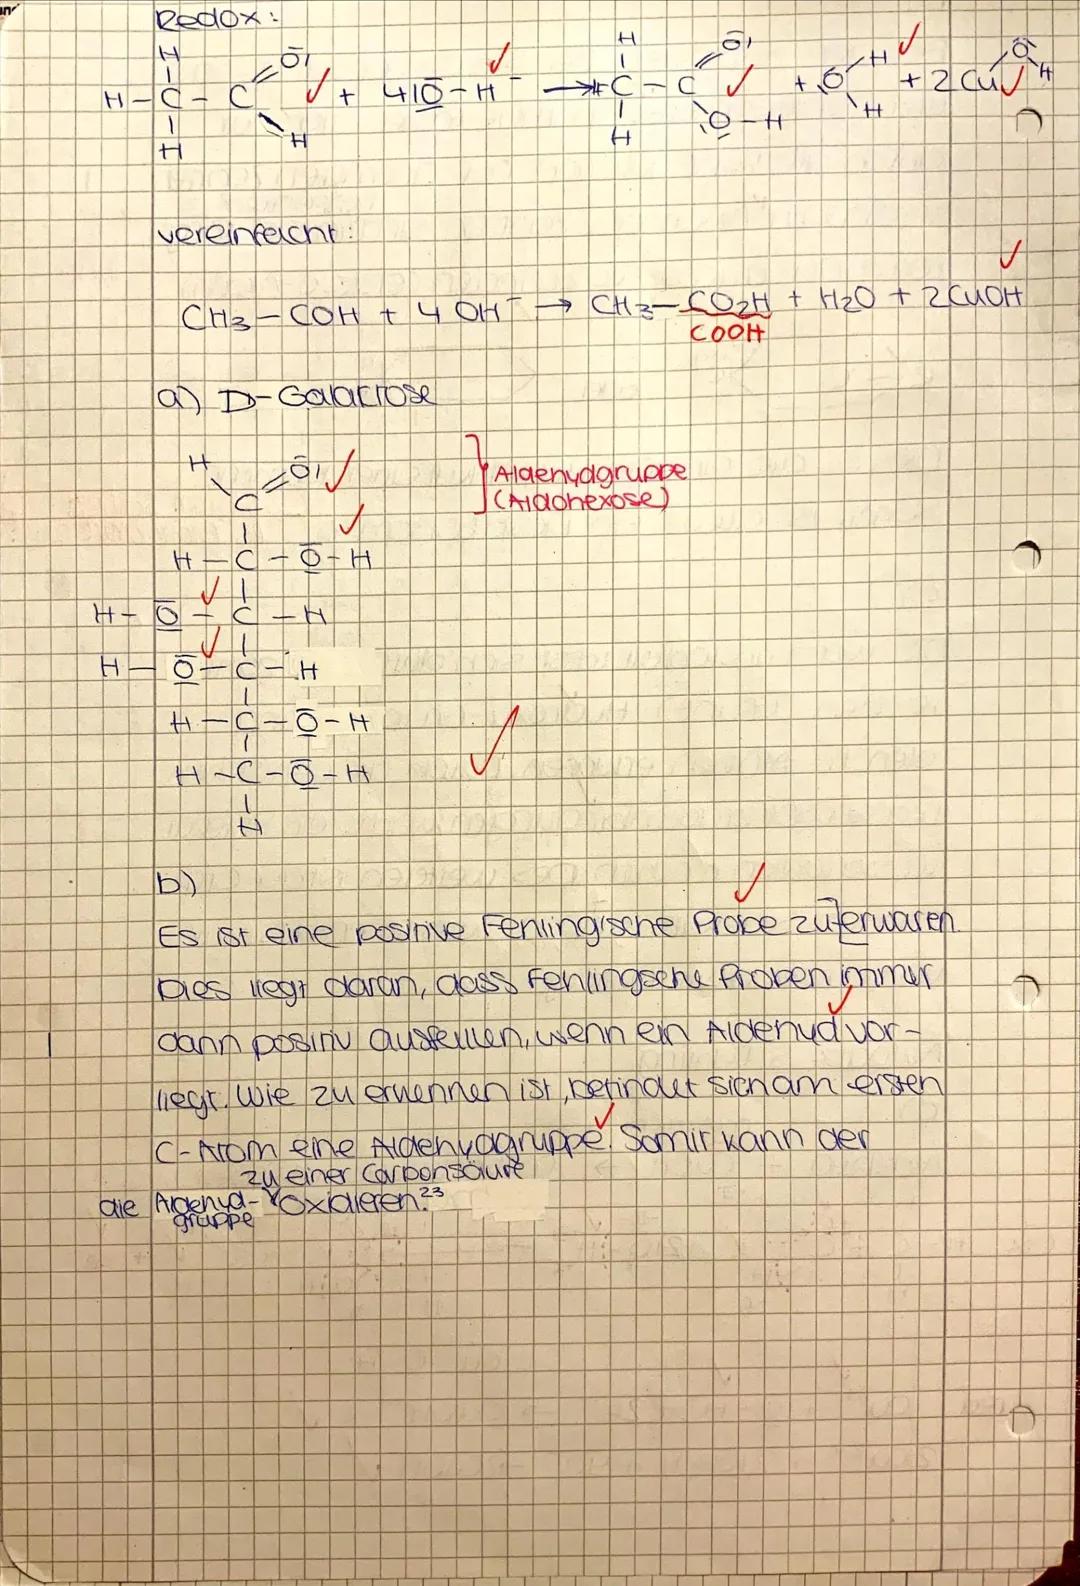 Redox:
H
H - C - C O H + 4 |O - H⁻ → H C - C O O - H + O H H + 2 Cu O H
H H
vereinfacht:
CH3 - COH + 4 OH⁻ → CH3 - CO2H + H2O + 2CuOH
COOH
a) D-Galactose
H O
C
H - C - O - H
H - O - C - H
H - O - C - H
H - C - O - H
H - C - O - H
H
Aldehydgruppe
(Aldohexose)
b)
Es ist eine positive Fehlingische Probe zu erwaren.
Dies liegt daran, dass Fehlingsche Proben immer
dann positiv ausfallen, wenn ein Aldehyd vor-
liegt. Wie zu erkennen ist, befindet sich am ersten
C-Atom eine Aldehydgruppe. Somit kann der
zu einer Carbonsäure
die Aldehyd- oxidieren.²³
gruppe